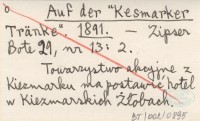 Auf der "Kesmarker
Tränke", 1891. — Zipser
Bote 29, nr 13: 2.
Towarzystwo akcyjne z
Kiezmarku ma postawić hotel
w Kiezmarskich Żłobach.
BJ/001/0895